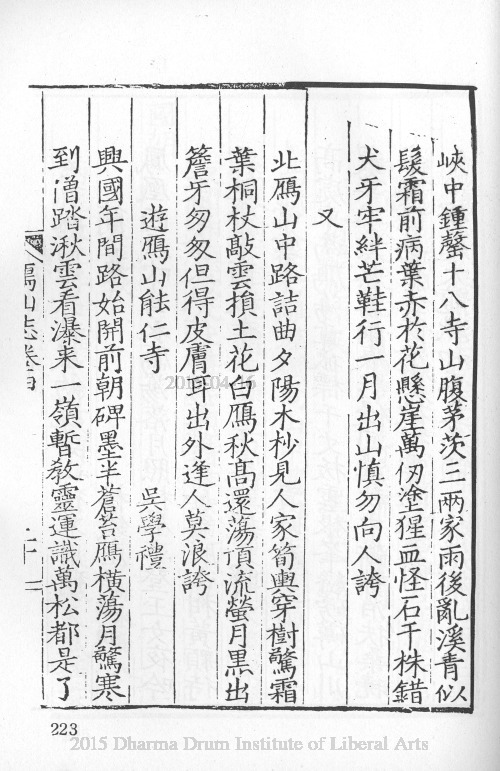 峽中鍾罄十八寺山腹茅茨三兩家雨後亂溪青似
鬂霜前病葉赤於花懸崖萬仞塗猩血怪石千株錯
犬牙牢絆芒鞋行一月出山慎勿向人誇
又
北鴈山中路詰曲夕陽木杪見人家筍輿穿樹驚霜
葉桐杖敲雲損土花白鴈秋髙還蕩頂流螢月黒出
簷牙匆匆但得皮膚耳出外逢人莫浪誇
遊鴈山能仁寺
吳學禮
興國年間路始開前朝碑墨半蒼苔鴈橫蕩月驚寒
到僧踏湫雲看瀑来一嶺暫教靈運識萬松都是了
鴈山志卷四
223
2015 Dharma Drum Institute of Liberal Arts